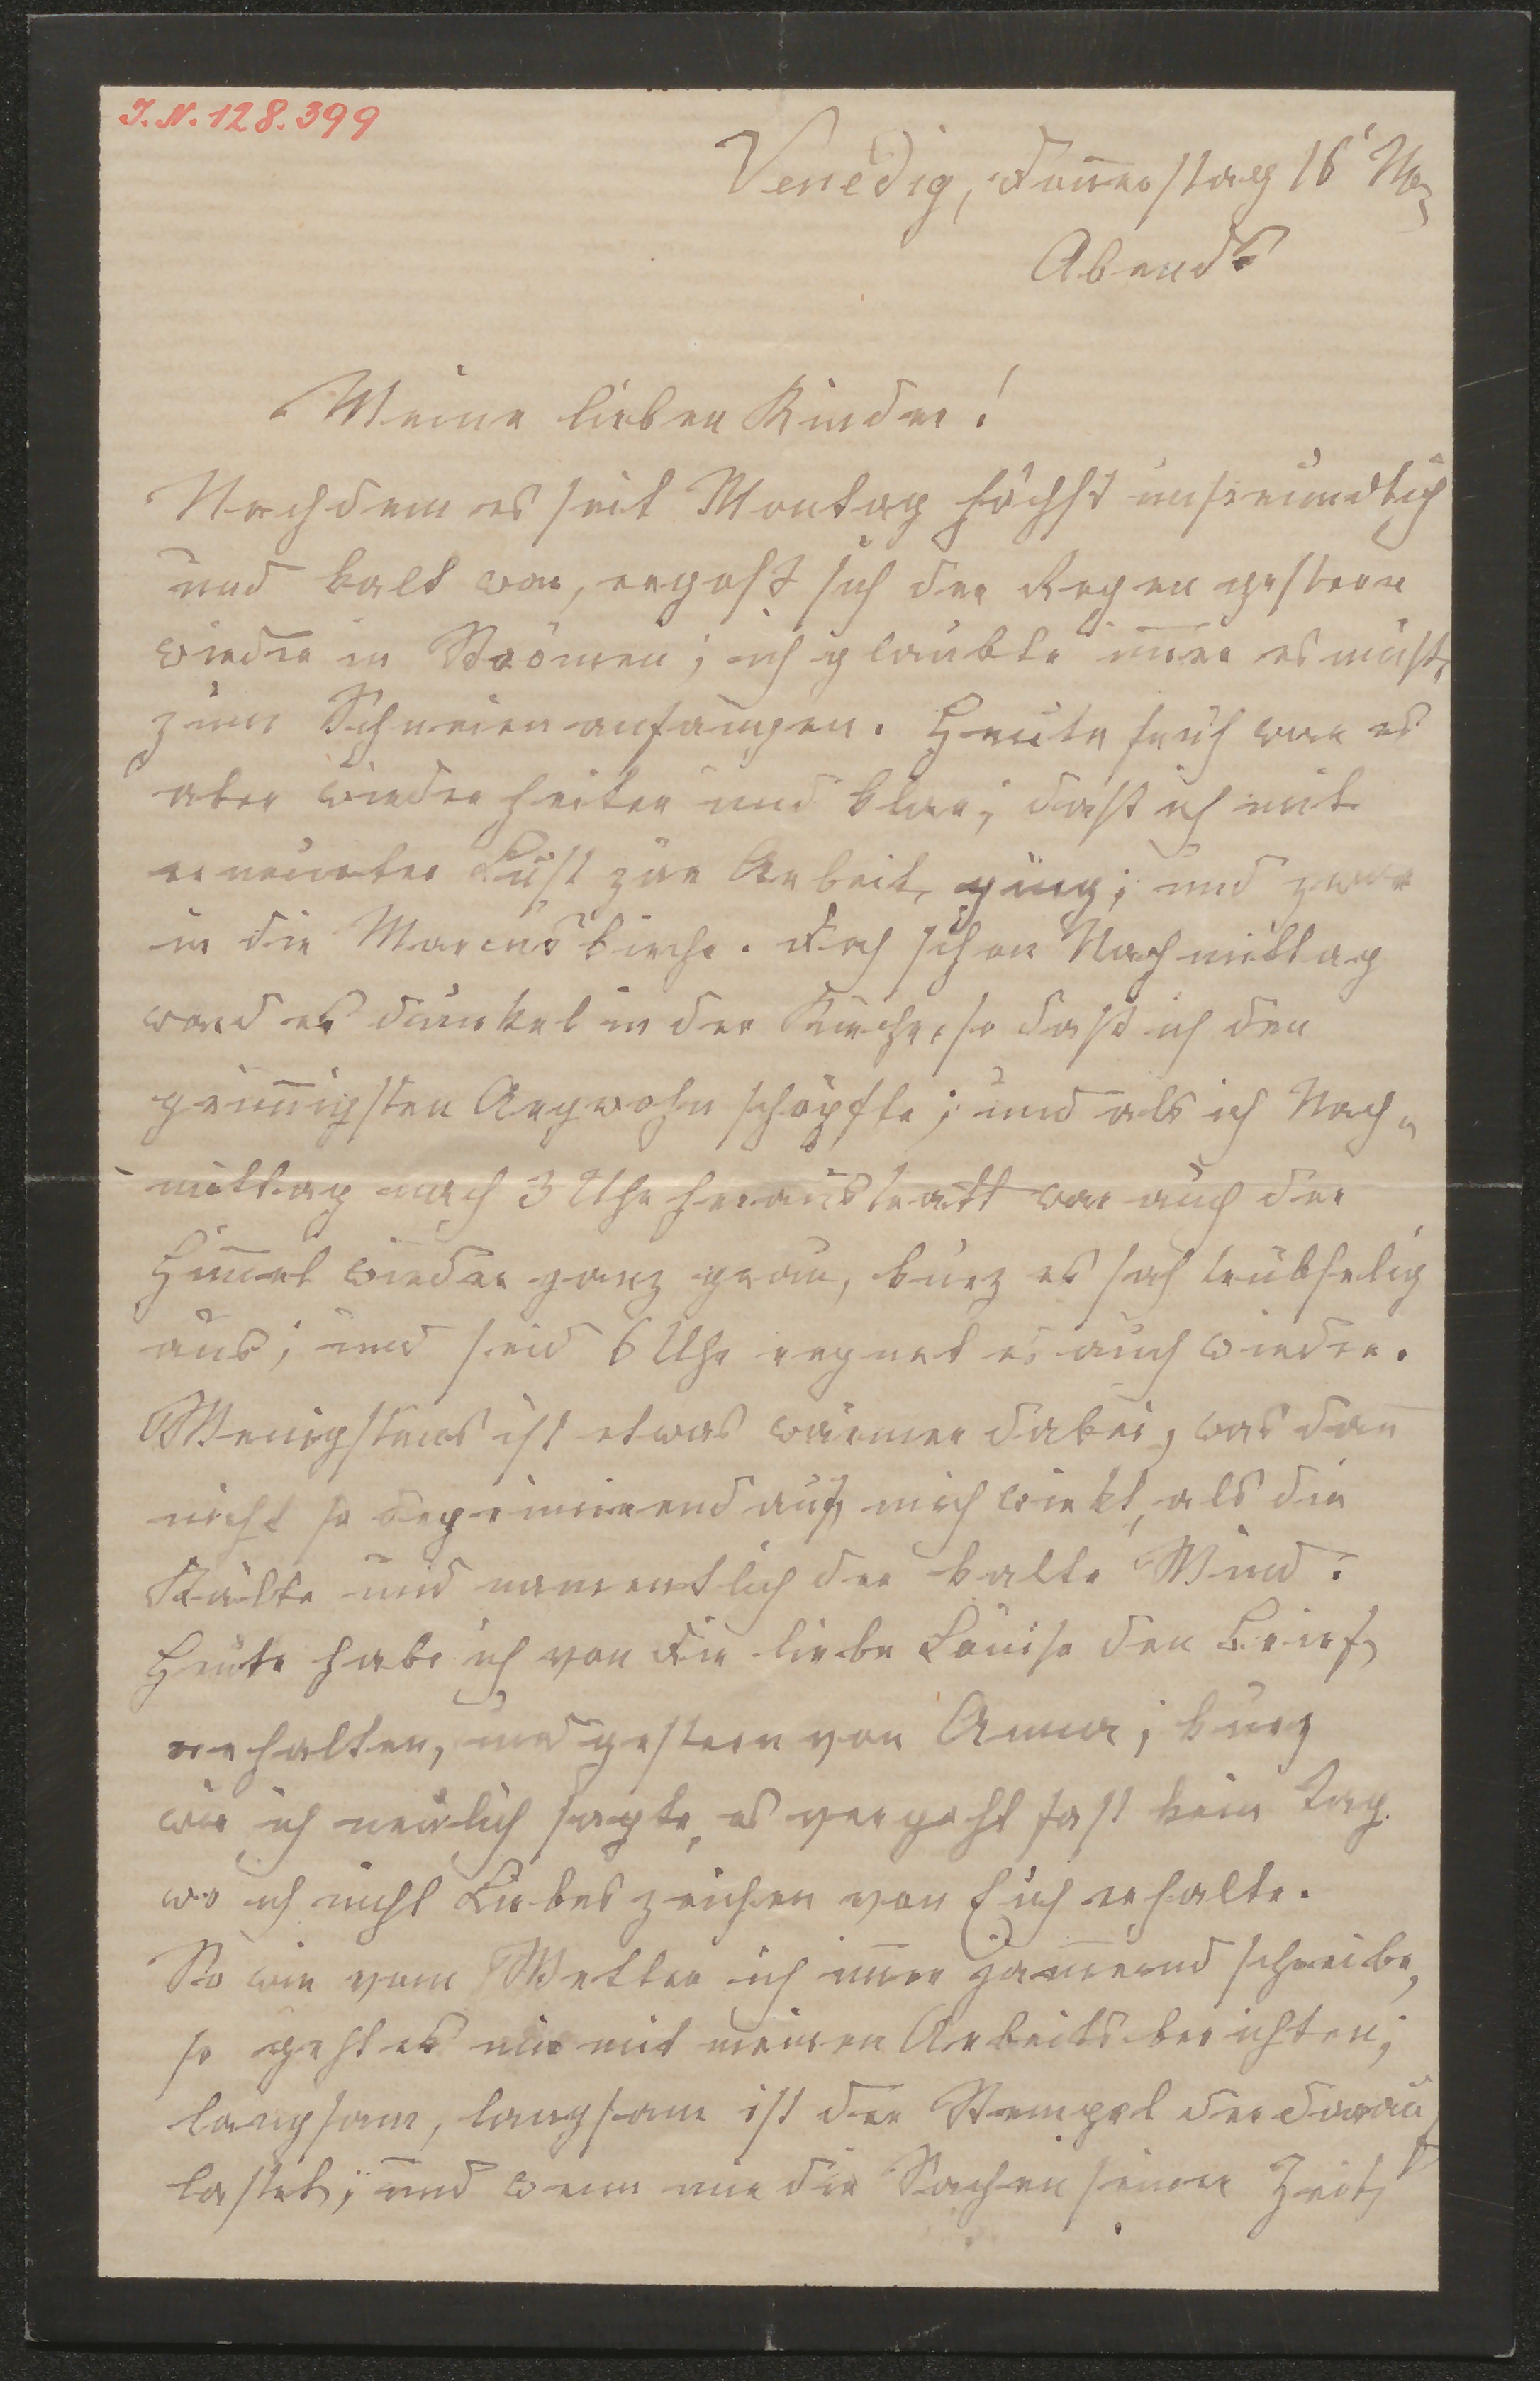 I.N. 128.399
Venedig, Donnerstag 16' Mrz
Abends
Meine lieben Kinder!
Nachdem es seit Montag höchst unfreundlich
und kalt war, ergoß sich der Regen gestern
wieder in Strömen; ich glaubte im̅er es müße
zum Schneien anfangen. Heute früh war es
aber wieder heiter und klar; daß ich mit
erneuter Lust zur Arbeit ging; und zwar
in die Marcuskirche. Doch schon Nachmittag
ward es dunkel in der Kirche, so daß ich den
grim̅igsten Argwohn schöpfte; und als ich Nach-
mittag nach 3 Uhr heraustratt war auch der
Him̅el wieder ganz grau, kurz es sah trübselig
aus; und seid 6 Uhr regnet es auch wieder.
Wenigstens ist etwas wärmer dabei, was dan̅
nicht so deprimirend auf mich wirkt, als die
Kälte und namentlich der kalte Wind.
Heute habe ich von Dir liebe Louise den Brief
erhalten, und gestern von Anna; kurz
wie ich neulich sagte, es vergeht fast kein Tag
wo ich nicht Liebeszeichen von Euch erhalte.
So wie vom Wetter ich im̅er jam̅ernd schreibe,
so geht es mir mit meinen Arbeitsberichten;
langsam, langsam ist der Stempel der darauf
lastet; und wenn mir die Sachen seiner Zeit